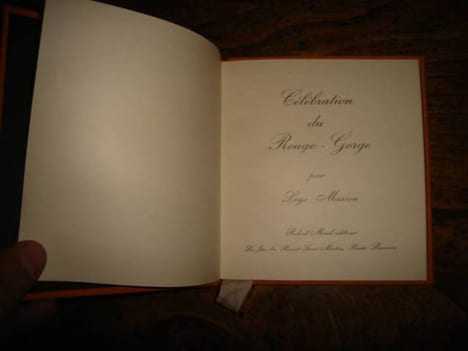 Célébration
du
Rouge-Gorge
par
Loys Masson
Robert Morel éditeur
Le Jas du Revest Saint-Martin, Haute Provence